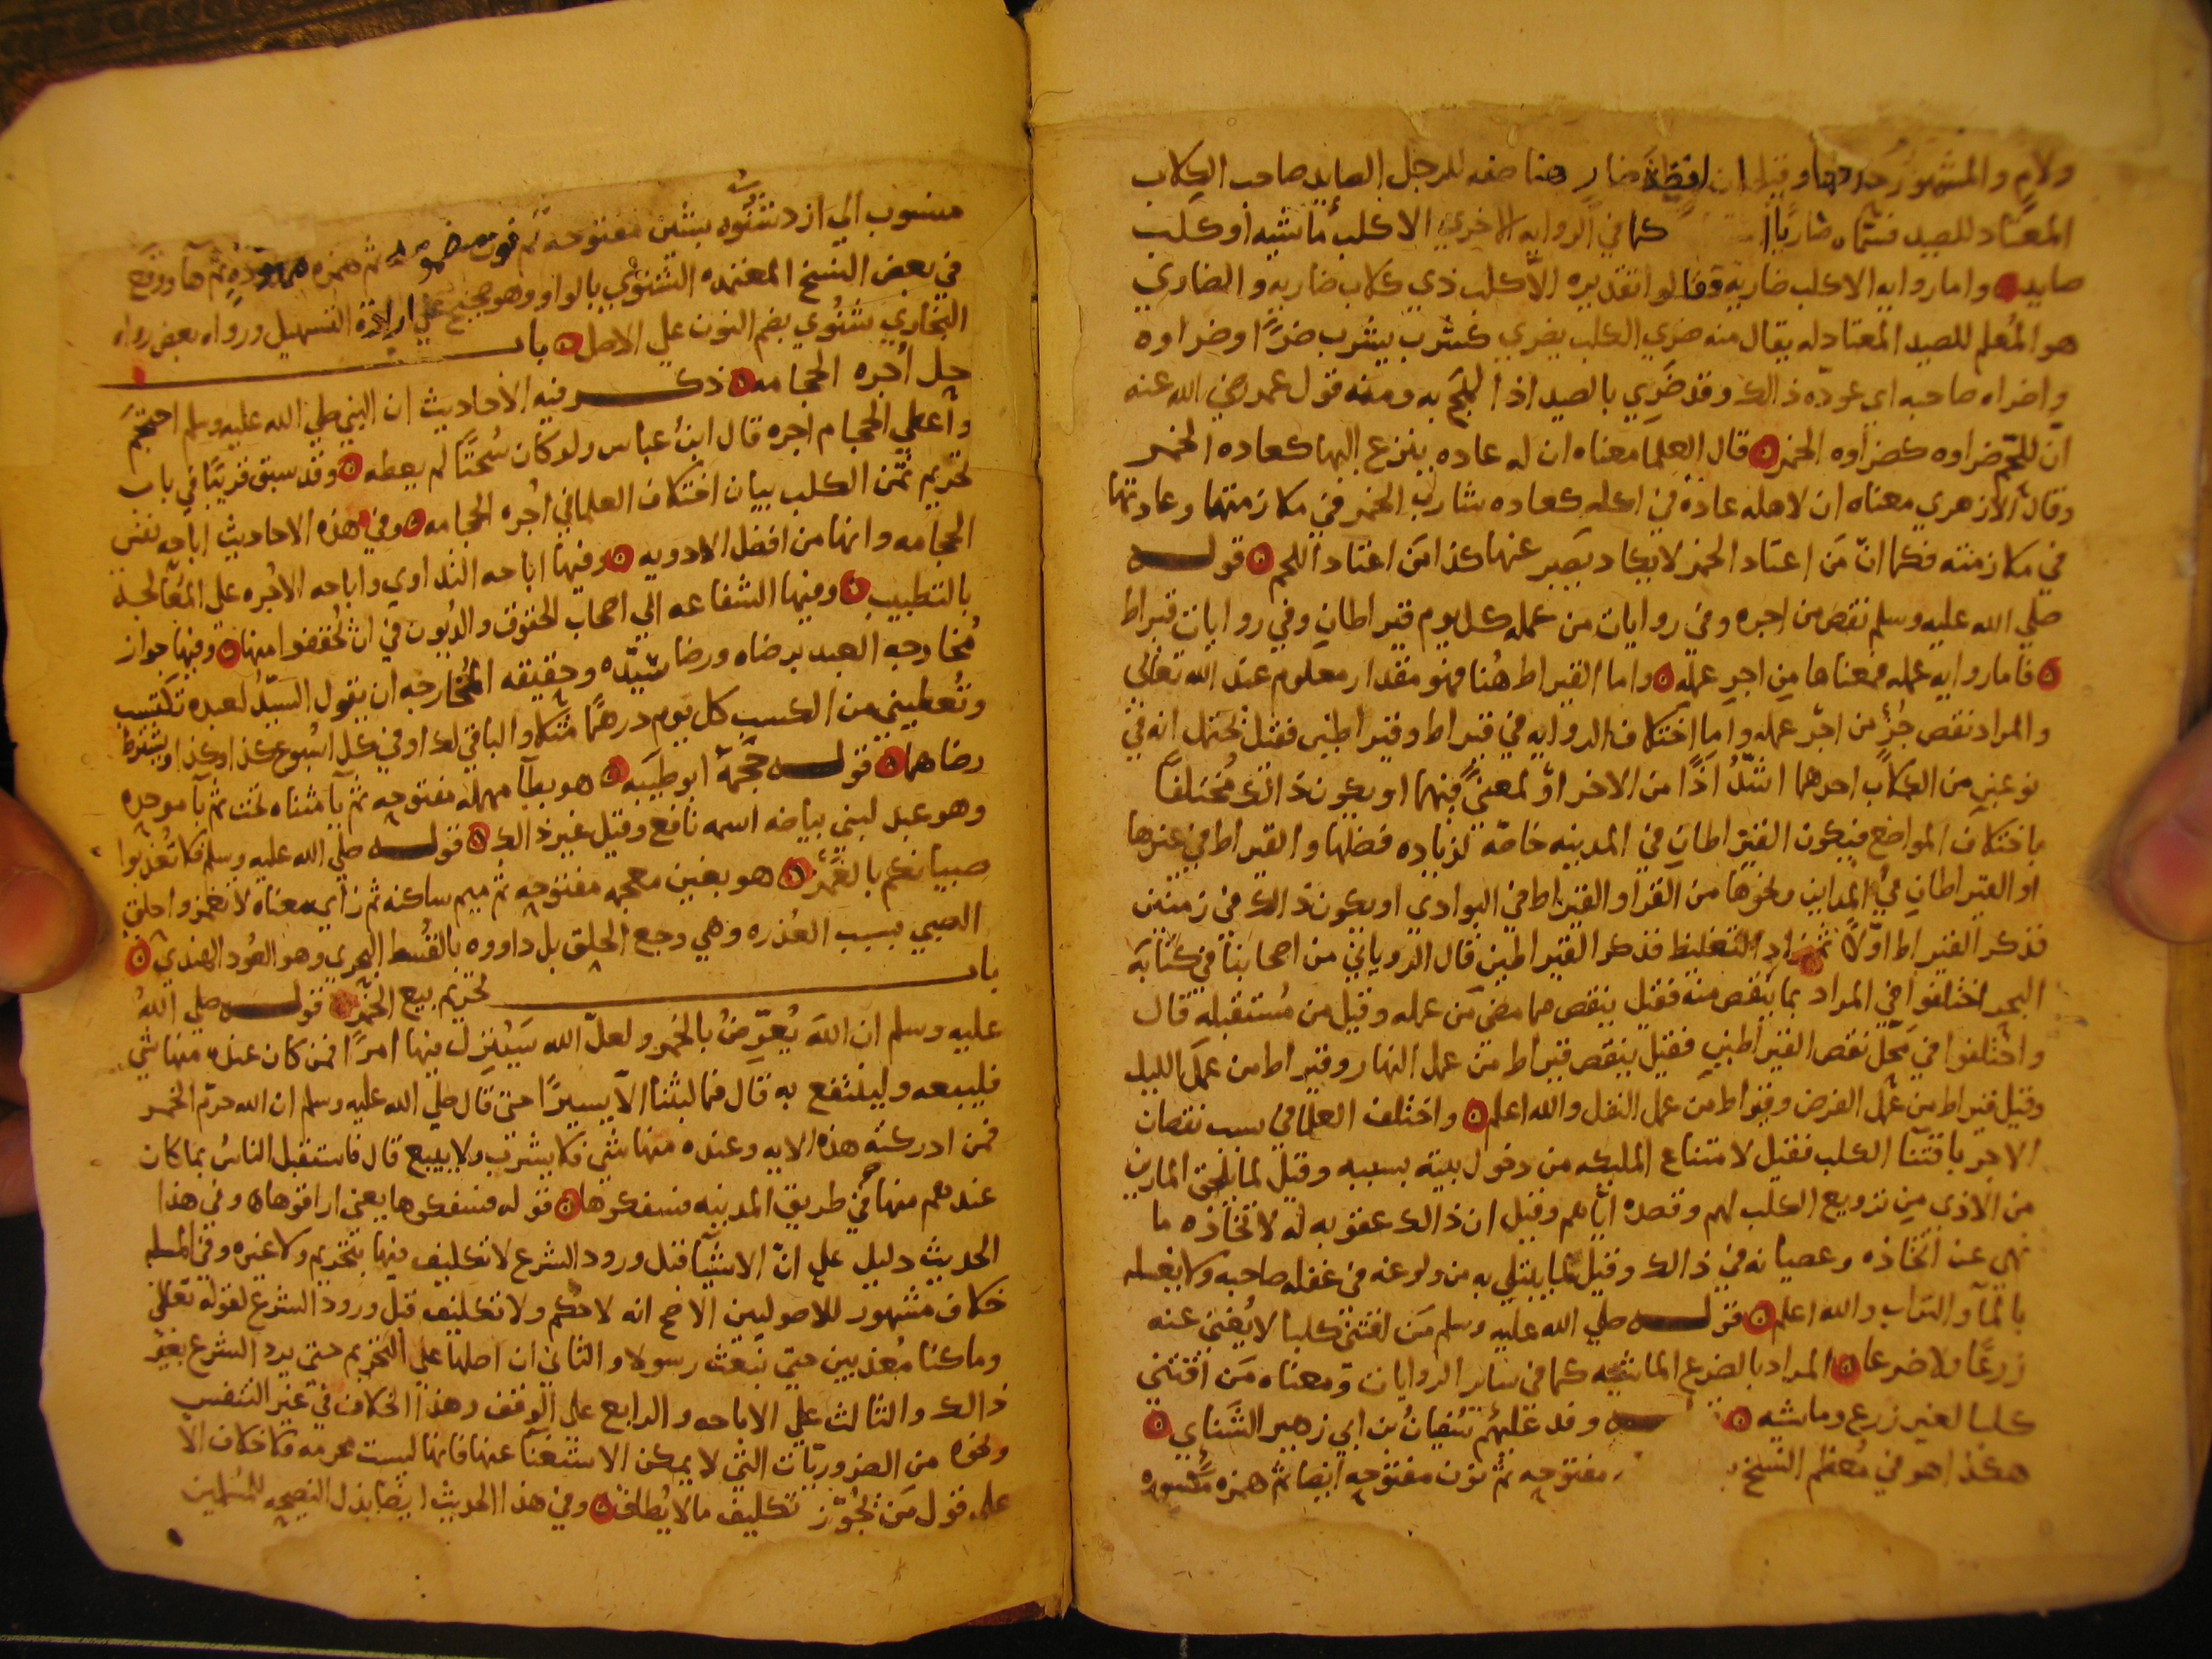 ولام والمشهور حدها وقيل ان لفظة ضار هنا صفه للرجل الصايد صاحب الكلاب
المعتاد للصيد فسماه ضاريا كما في الروايه الاخري الا كلب ماشيه او كلب
صايد ه واما روايه الا كلب ضاريه فقالوا تقديره الا كلب ذي كلاب ضاريه والضاري
هو المُعلم للصيد المعتاد له يقال منه ضري الكلب يضري كشرب يشرب ضرًا وضراوه
واضراه صاحبه اي عوده ذالك وقد ضَرِي بالصيد اذا لهج به ومنه قول عمر رضي الله عنه
ان للحم ضراوه كضراوه الخمر ه قال العلما معناه ان له عاده ينزع اليها كعاده الخمر
وقال الازهري معناه ان لاهله عادة في اكله كعاده شارب الخمر في ملازمتها وعادتها
في ملازمته فكما انّ مَن اعتاد الخمر لا يكاد يصبر عنها كذا مَن اعتاد اللحم ه قوله
صلي الله عليه وسلم نقص من اجره وفي روايات من عمله كل يوم قيراطان وفي روايات قيراط
ه فاما روايه عمله فمعناها مِن اجر عمله ه واما القيراط هُنا فهو مقدار معلوم عند الله تعالى
والمراد نقص جُزء من اجر عمله واما اختلاف الروايه في قيراط وقيراطين فقيل يحتمل انه في
نوعين من الكلاب احدهما اشدّ اذًا من الاخر او لمعنًى فيهما او يكون ذالك مُختلفًا
باختلاف المواضع فيكون القيراطان في المدينه خاصّه لزياده فضلها والقيراط في غيرها
او القيراطان في المداين ونحوها من القرا والقيراط في البوادي او يكون ذالك في زمنين
فذكر القيراط اوّلًا ثم زاد التغليظ فذكر القيراطين قال الروياني من اصحابنا في كتابه
البحر اختلفوا في المراد بما ينقص منه فقيل ينقص مما مضي من عمله وقيل من مُستقبله قال
واختلفوا في مَحلّ نقص القيراطين فقيل ينقص قيراط من عمل النهار وقيراط من عمل الليل
وقيل قيراط من عمل الفرض وقيراط من عمل النفل والله اعلم ه واختلف العلما في سبب نقصان
الاجر باقتنا الكلب فقيل لامتناع المليكه من دخول بيته بسببه وقيل لما يلحق المارين
من الاذي مِن ترويع الكلب لهم وقصده ايّاهم وقيل ان ذالك عقوبه له لاتخاذه ما
نهي عن اتخاذه وعصيانه في ذالك وقيل لما يبتلي به من ولوغه في غفله صاحبه ولا يغسله
بالمآ والتراب والله اعلم ه قوله صلي الله عليه وسلم مَن اقتني كلبا لا يُغني عنه
زرعًا ولا ضرعا ه المراد بالضرع الماشيه كما في ساير الروايات ومعناه مَن اقتني
كلبا لغير زرع وماشيه ه وفد عَليهُم سُفيانُ بن ابي زهير الشَنَاي ه
هكذا هو في مُعظم النسخ مفتوحه ثم نون مفتوحه ايضا ثم همزه مكسوره
منسوب الي ازد شَنُوه بشين مفتوحه ثم نون مضمومه ثم همزه ممدوده ثم ها ووقع
في بعض النسخ المعتمده الشَنَوي بالواو وهو صحيح علي ارادة التسهيل ورواه بعض رواه
البخاري شَنُوي بضم النون علي الاصل ه باب
حل اُجره الحجامه ه ذكر فيه الاحاديث ان النبي صلي الله عليه وسلم احتجم
واعطي الحجام اجره قال ابن عباس ولو كان سُحتًا لم يعطه ه وقد سبق قريبًا في باب
تحريم ثمن الكلب بيان اختلاف العلما في اُجره الحجامه ه وفي هذه الاحاديث اباحه نفس
الحجامه وانها من افضل الادويه ه وفيها اباحه التداوي واباحه الاجره علي المُعَالجه
بالتطبيب ه وفيها الشفاعه الي اصحاب الحقوق والديون في ان يُخففوا منها ه وفيها جواز
مُخارجه العبد برضاه ورضا سَيّده وحقيقه المُخَارجه ان يقول السيّدُ لعبده تكتسب
وتُعطيني من الكسب كل يوم درهمًا مثلا والباقي لك او في كل اسبوع كذا وكذا ويشترط
رضاهما ه قوله حَجمهُ ابو طَيبه ه هو بطآ مهمله مفتوحه ثم يآ مثناه تحت ثم بآ موحده
وهو عبد لبني بياضه اسمه نافع وقيل غير ذالك ه قوله صلي الله عليه وسلم فلا تُعذبوا
صبيانكم بالغَمْز ه هو بغين معجمه مفتوحه ثم ميم ساكنه ثم زاي معناه لا تغمزوا حلق
الصبي بسبب العُذره وهي وجع الحلق بل داووه بالقُسط البحري وهو العُود الهندي ه
باب تحريم بيع الخمر قوله صلي اللهُ
عليه وسلم ان اللهَ يُعَرّضُ بالخمر ولعلّ الله سَيُنزِل فيها امرًا فمن كان عنده منها شي
فليبعه ولينتفع به قال فما لبثنا الّا يسيرًا حتي قال صلي الله عليه وسلم ان الله حرّم الخمر
فمن ادركته هذه الايه وعنده منها شي فلا يشرب ولا يبيع قال فاستقبل الناسُ بما كان
عندهم منها في طريق المدينه فسفكوها ه قوله فسفكوها يعني اراقوها ه وفي هذا
الحديث دليل علي انّ الاشيآ قبل ورود الشرع لا تكليف فيها بتحريم ولا غيره وفي المسله
خلاف مشهور للاصوليين الاصح انه لا حُكم ولا تكليف قبل ورود الشرع لقوله تعالي
وما كنا مُعذبين حتي نبعث رسولا والثاني ان اصلها علي التحريم حتي يرد الشرع بغير
ذالك والثالث علي الاباحه والرابع علي الوقف وهذا الخلاف في غير التنفس
ونحوه من الضروريّات التي لا يمكن الاستغنا عنها فانها ليست محرمه فلا خلاف الّا
علي قول مَن يُجَوّز تكليف ما لا يُطاق ه وفي هذا الحديث ايضا بذل النصيحه للمسلمين